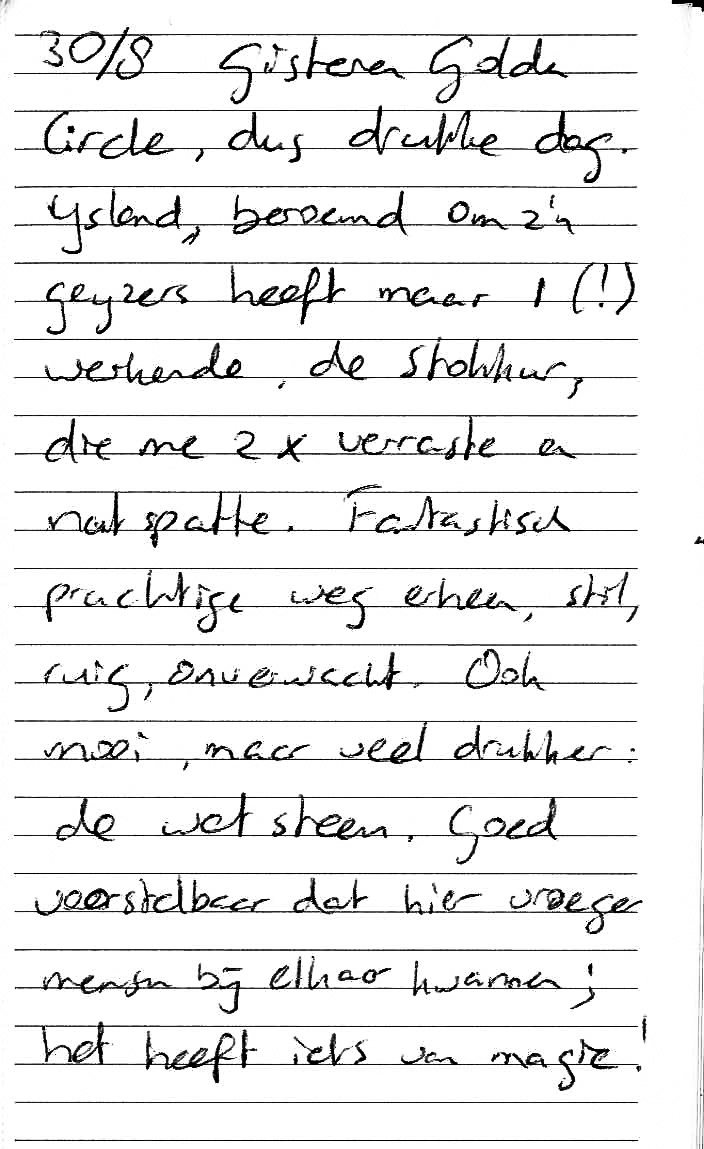 30/8 Gisteren Golden
Circle, dus drukke dag.
Ysland, beroemd om z'n
geyzers heeft maar 1 (!)
werkende, de Stokkur,
die me 2x verraste en
nat spatte. Fantastisch
prachtige weg erheen, stil,
ruig, onverwacht. Ook
mooi, maar veel drukker:
de wet steen. Goed
voorstelbaar dat hier vroeger
mensen bij elkaar kwamen;
het heeft iets van magie!